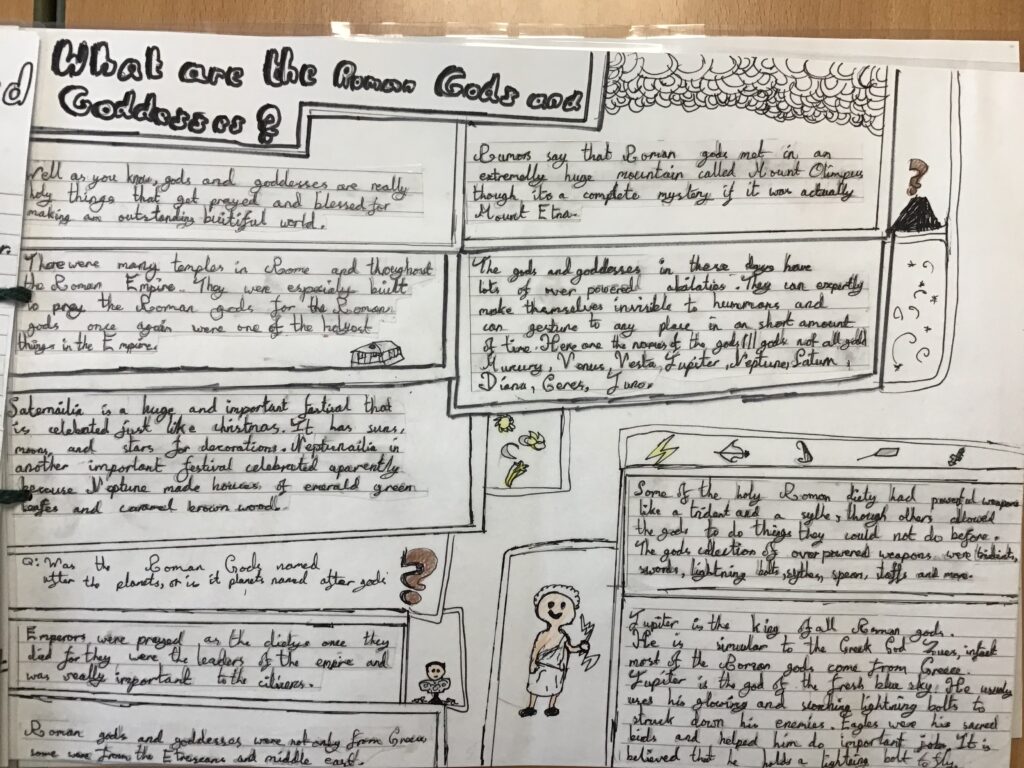 What are the Roman Gods and
Goddesses?
Well as you know, gods and goddesses are really
holy things that get prayed and blessed for
making an outstanding buitiful world.
Rumors say that Roman gods met in an
extremelly huge mountain called Mount Olimpus
though its a complete mystery if it was actually
Mount Etna.
There were many temples in Rome and thoughout
the Roman Empire. They were especialy built
to prey the Roman gods for the Roman
gods once again were one of the holyost
things in the Empire.
The gods and goddesses in these days have
lots of over powered abilaties. They can expertly
make themselves invisible to hummans and
can gesture to any place in an short amount
of time. Here are the names of the gods gods not all gods
Murcury, Venus, Vesta, Jupiter, Neptune, Saturn,
Diana, Ceres, Juno.
Saternailia is a huge and important festival that
is celebrated just like christmas. It has suns,
moons, and stars for decorations. Neptunailia in
another important festival celebrated aparently
because Neptune made houses of emerald green
leafes and caramel brown wood.
Q: Was the Roman Gods named
after the planets, or is it planets named after gods
Emperors were preyed as the dietys once they
died for they were the leaders of the empire and
was really important to the citizers.
Roman gods and goddesses were not only from Greece
some were from the Etruscans and middle east.
Some of the holy Roman diety had powerful weapons
like a trident and a sythe, though others allowed
the gods to do things they could not do before.
The gods collection of overpowered weapons were tridents,
swords, lightning bolts, sythes, spears, staffs and more.
Jupiter is the King of all Roman gods.
He is simular to the Greek God Zues, infact
most of the Roman gods come from Greece.
Jupiter is the god of the fresh blue sky. He usualy
uses his glowing and scorching lightning bolts to
struck down his enemies. Eagles were his sacred
birds and helped him do important jobs. It is
believed that he holds a lighting bolt to fly.